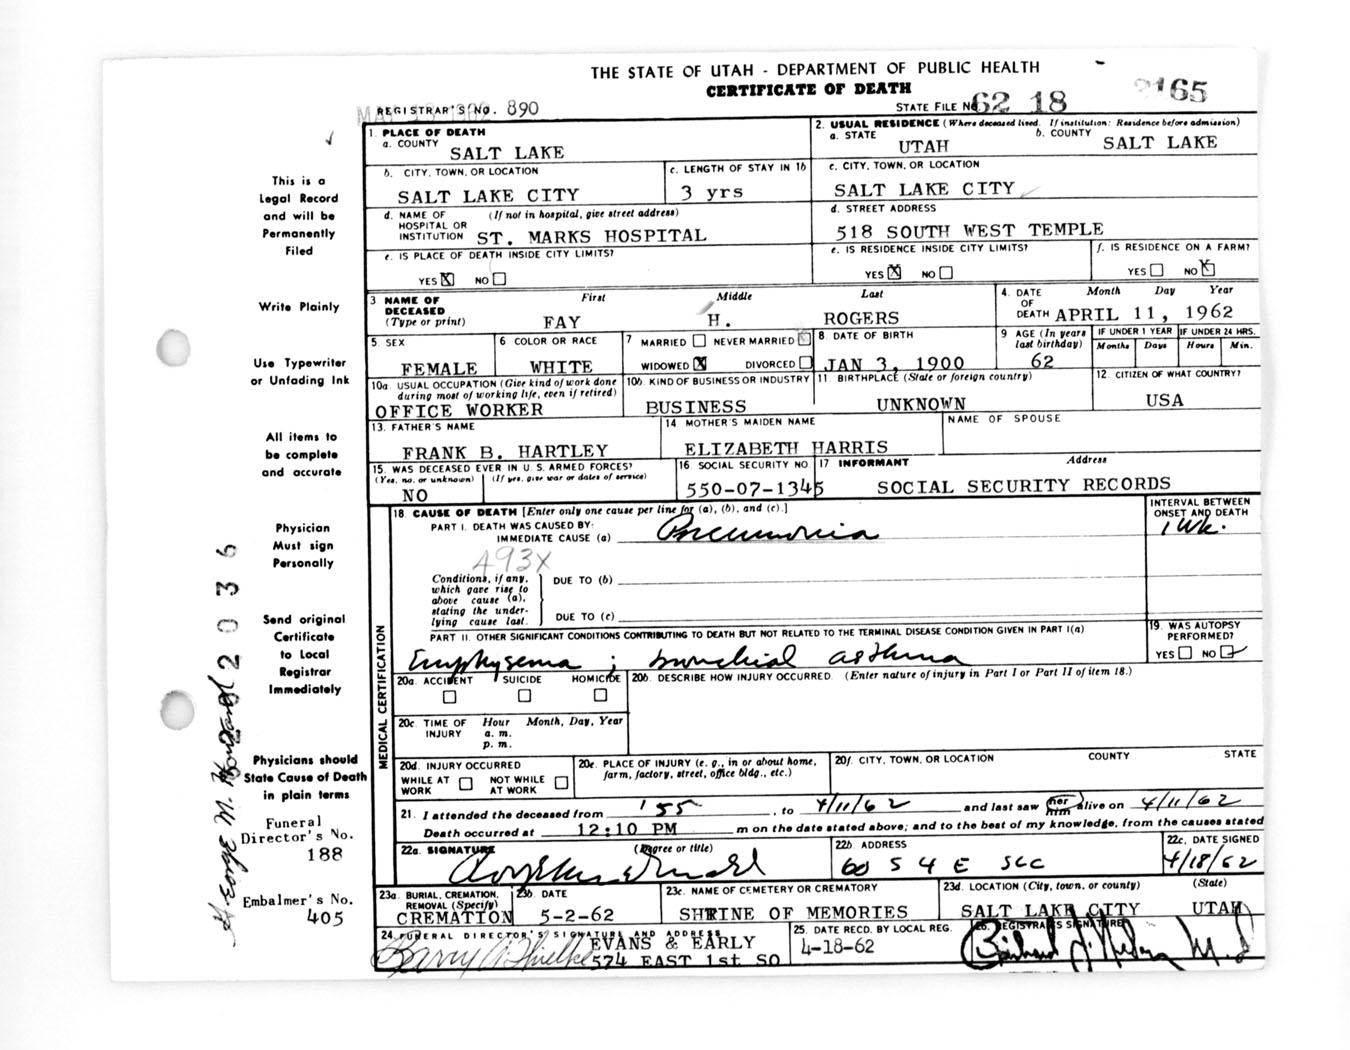 THE STATE OF UTAH - DEPARTMENT OF PUBLIC HEALTH
CERTIFICATE OF DEATH
REGISTRAR'S NO. 890
STATE FILE NO. 62 18 2165
1. PLACE OF DEATH
a. COUNTY
SALT LAKE
2. USUAL RESIDENCE (Where deceased lived. If institution: Residence before admission)
a. STATE b. COUNTY
UTAH SALT LAKE
b. CITY, TOWN, OR LOCATION c. LENGTH OF STAY IN 1b
SALT LAKE CITY 3 yrs
c. CITY, TOWN, OR LOCATION
SALT LAKE CITY
d. NAME OF HOSPITAL OR INSTITUTION (If not in hospital, give street address)
ST. MARKS HOSPITAL
d. STREET ADDRESS
518 SOUTH WEST TEMPLE
e. IS PLACE OF DEATH INSIDE CITY LIMITS?
YES X NO
e. IS RESIDENCE INSIDE CITY LIMITS?
YES X NO
f. IS RESIDENCE ON A FARM?
YES NO X
3 NAME OF DECEASED (Type or print) First Middle Last
FAY H. ROGERS
4. DATE OF DEATH Month Day Year
APRIL 11, 1962
5. SEX
FEMALE
6 COLOR OR RACE
WHITE
7 MARRIED NEVER MARRIED
WIDOWED X DIVORCED
8. DATE OF BIRTH
JAN 3, 1900
9 AGE (In years last birthday)
62
IF UNDER 1 YEAR IF UNDER 24 HRS.
Months Days Hours Min.
10a. USUAL OCCUPATION (Give kind of work done during most of working life, even if retired)
OFFICE WORKER
10b. KIND OF BUSINESS OR INDUSTRY
BUSINESS
11. BIRTHPLACE (State or foreign country)
UNKNOWN
12. CITIZEN OF WHAT COUNTRY?
USA
13. FATHER'S NAME
FRANK B. HARTLEY
14 MOTHER'S MAIDEN NAME
ELIZABETH HARRIS
NAME OF SPOUSE
15. WAS DECEASED EVER IN U. S. ARMED FORCES?
(Yes, no, or unknown) (If yes, give war or dates of service)
NO
16 SOCIAL SECURITY NO.
550-07-1345
17 INFORMANT Address
SOCIAL SECURITY RECORDS
MEDICAL CERTIFICATION
18. CAUSE OF DEATH [Enter only one cause per line for (a), (b), and (c).]
INTERVAL BETWEEN ONSET AND DEATH
PART I. DEATH WAS CAUSED BY:
IMMEDIATE CAUSE (a) Pneumonia 1 wk.
493X
Conditions, if any, which gave rise to above cause (a), stating the underlying cause last.
DUE TO (b)
DUE TO (c)
PART II. OTHER SIGNIFICANT CONDITIONS CONTRIBUTING TO DEATH BUT NOT RELATED TO THE TERMINAL DISEASE CONDITION GIVEN IN PART I(a)
Emphysema ; bronchial asthma
19. WAS AUTOPSY PERFORMED?
YES NO
20a. ACCIDENT SUICIDE HOMICIDE
20b. DESCRIBE HOW INJURY OCCURRED. (Enter nature of injury in Part I or Part II of item 18.)
20c. TIME OF INJURY Hour Month, Day, Year
a. m.
p. m.
20d. INJURY OCCURRED
WHILE AT WORK NOT WHILE AT WORK
20e. PLACE OF INJURY (e. g., in or about home, farm, factory, street, office bldg., etc.)
20f. CITY, TOWN, OR LOCATION COUNTY STATE
21. I attended the deceased from '55, to 4/11/62 and last saw her him alive on 4/11/62
Death occurred at 12:10 PM m on the date stated above; and to the best of my knowledge, from the causes stated
22a. SIGNATURE (Degree or title)
22b. ADDRESS
60 S 4 E SLC
22c. DATE SIGNED
4/18/62
23a. BURIAL, CREMATION, REMOVAL (Specify)
CREMATION
23b. DATE
5-2-62
23c. NAME OF CEMETERY OR CREMATORY
SHRINE OF MEMORIES
23d. LOCATION (City, town, or county) (State)
SALT LAKE CITY UTAH
24. FUNERAL DIRECTOR'S SIGNATURE AND ADDRESS
EVANS & EARLY
574 EAST 1st SO
25. DATE RECD. BY LOCAL REG.
4-18-62
26. REGISTRAR'S SIGNATURE
This is a
Legal Record
and will be
Permanently
Filed
Write Plainly
Use Typewriter
or Unfading Ink
All items to
be complete
and accurate
Physician
Must sign
Personally
Send original
Certificate
to Local
Registrar
Immediately
Physicians should
State Cause of Death
in plain terms
Funeral
Director's No.
188
Embalmer's No.
405
George M.
2036